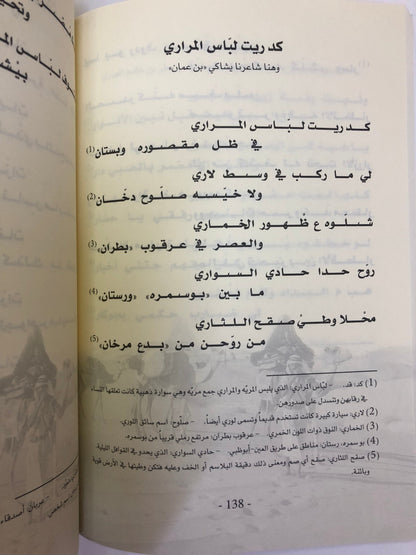 كد ريت لبّاس المراري
وهنا شاعرنا يشاكي «بن عمان»
كد ريت لبّاس المراري
في ظل مقصوره وبستان(1)
لي ما ركب في وسط لاري
ولا خيّسه صلوح دخّان(2)
شلّوه ع ظهور الخماري
والعصر في عرقوب «بطران»(3)
روح حدا حادي السواري
ما بين «بوسمره» «ورستان»(4)
محلا وطيْ صفح اللثاري
من روّحن من «بدع مرخان»(5)
(1) كد: قد. - لبّاس المراري: الذي يلبس المريّه والمراري جمع مريّه وهي سوارة ذهبية كانت تعلقها النساء
في رقابهن وتنسدل على صدورهن.
(2) لاري: سيارة كبيرة كانت تستخدم قديماً وتسمى لوري أيضاً. - صلوح: اسم سائق اللوري.
(3) الخماري: النوق ذوات اللون الخمري. - عرقوب بطران: مرتفع رملي قريباً من بوسمره.
(4) بوسمره، رستان: مناطق على طريق العين-أبوظبي. - حادي السواري: الذي يحدو في القوافل الليلية.
(5) صفح اللثاري: أي صم ومعنى ذلك دقيقة البلاسم أو الخف وعليه فتكن وطيتها في الأرض قوية
وباتنة.
- 138 -